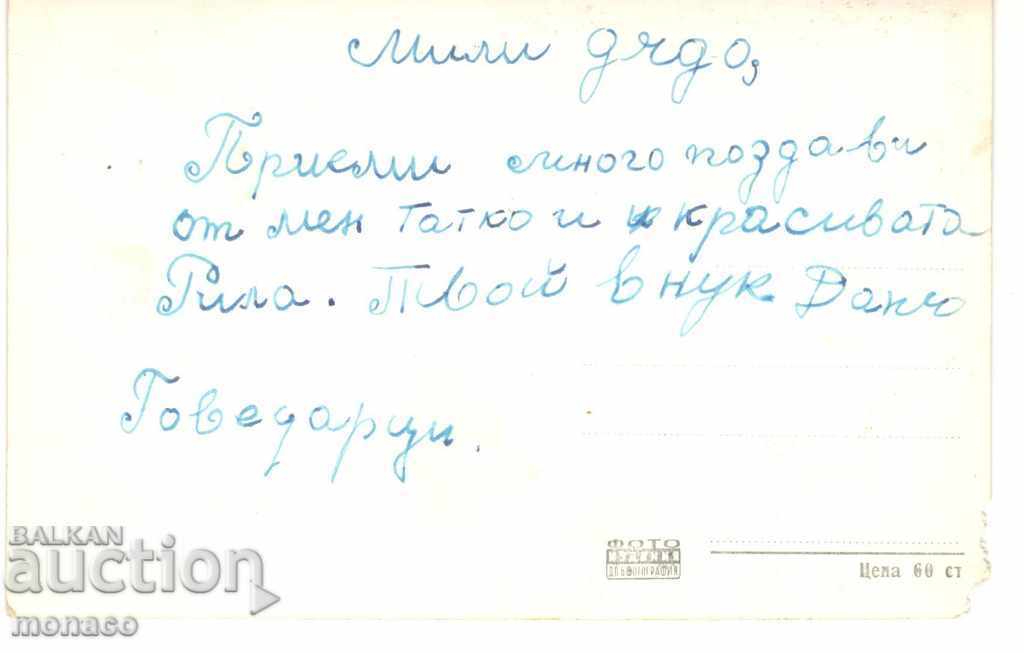 Мили дядо,
Приеми много поздави
от мен Татко и красивата
Рила. Твой внук Данчо
Говедарци.
ФОТО
ИЗДАНИЕ
ДП БЪЛФОТОГРАФИЯ
Цена 60 ст
BALKAN
auction
monaco